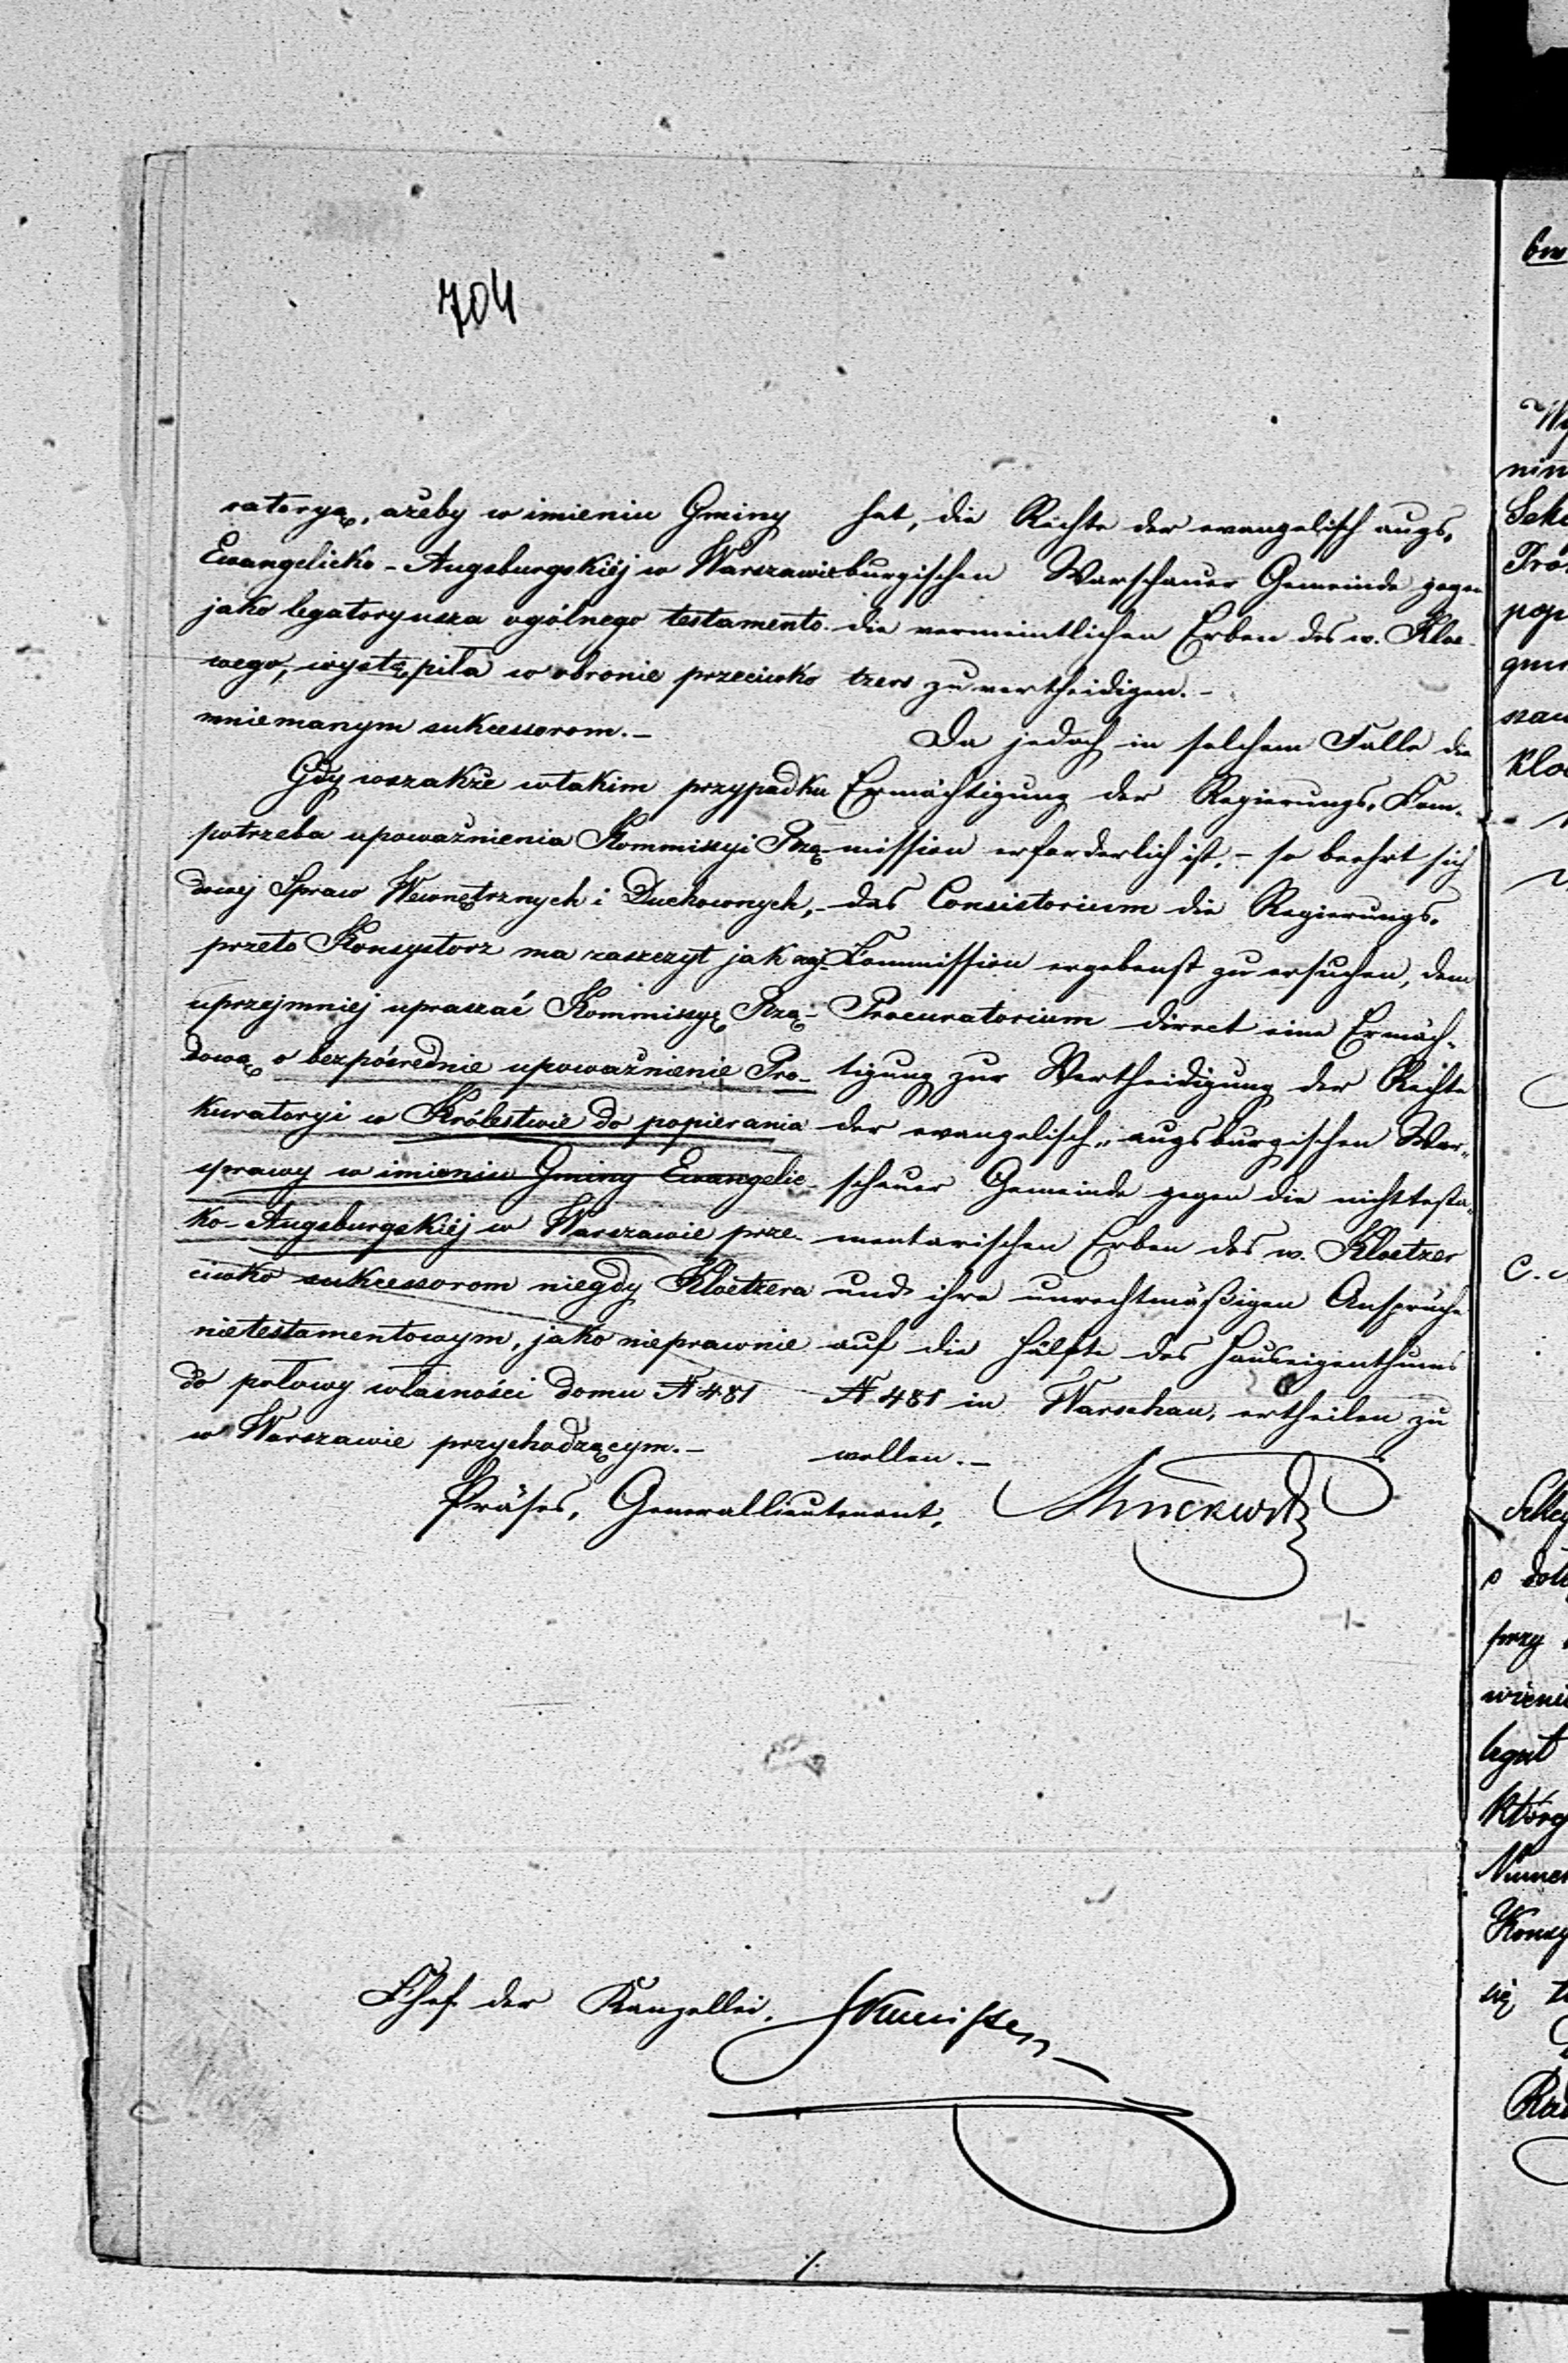 704
ratoryą, ażeby w imieniu Gminy
Ewangelicko-Augsburgskiéj w Warszawie
jako legatoryusza ogólnego testamento-
wego, wystąpiła w obronie przeciwko
mniemanym sukcessorom.-
Gdy wszakże w takim przypadku
potrzeba upoważnienia Kommissyi Rzą-
dowej Spraw Wewnętrznych i Duchownych,-
przeto Konsystorz ma zaszczyt jak naj-
uprzejmniej upraszać Kommissyę Rzą-
dową o bezpośrednie upoważnienie Pro-
kuratoryi w Królestwie do popierania
sprawy w imieniu Gminy Ewangelic-
ko-Augsburgskiéj w Warszawie prze-
ciwko sukcessorom niegdy Kloetzera
nietestamentowym, jako nieprawnie
do połowy własności domu N 481
w Warszawie przychodzącym.-
hat, die Rechte der evangelisch augs-
burgischen Warschauer Gemeinde gegen
die vermeintlichen Erben des w. Kloe-
tzers zu vertheidigen.-
Da jedoch in solchem Falle die
Ermächtigung der Regierungs-Com-
mission erforderlich ist,- so beehrt sich
das Consistorium die Regierungs-
Commission ergebenst zu ersuchen, dem
Procuratorium direct eine Ermäch-
tigung zur Vertheidigung der Rechte
der evangelisch-augsburgischen War-
schauer Gemeinde gegen die nichttesta-
mentarischen Erben des w. Kloetzer
und ihre unrechtmäßigen Ansprüche
auf die Hälfte des Hauseigenthums
N 481 in Warschau, ertheilen zu
wollen.-
Präses, Generallieutenant,
Chef der Kanzellei,